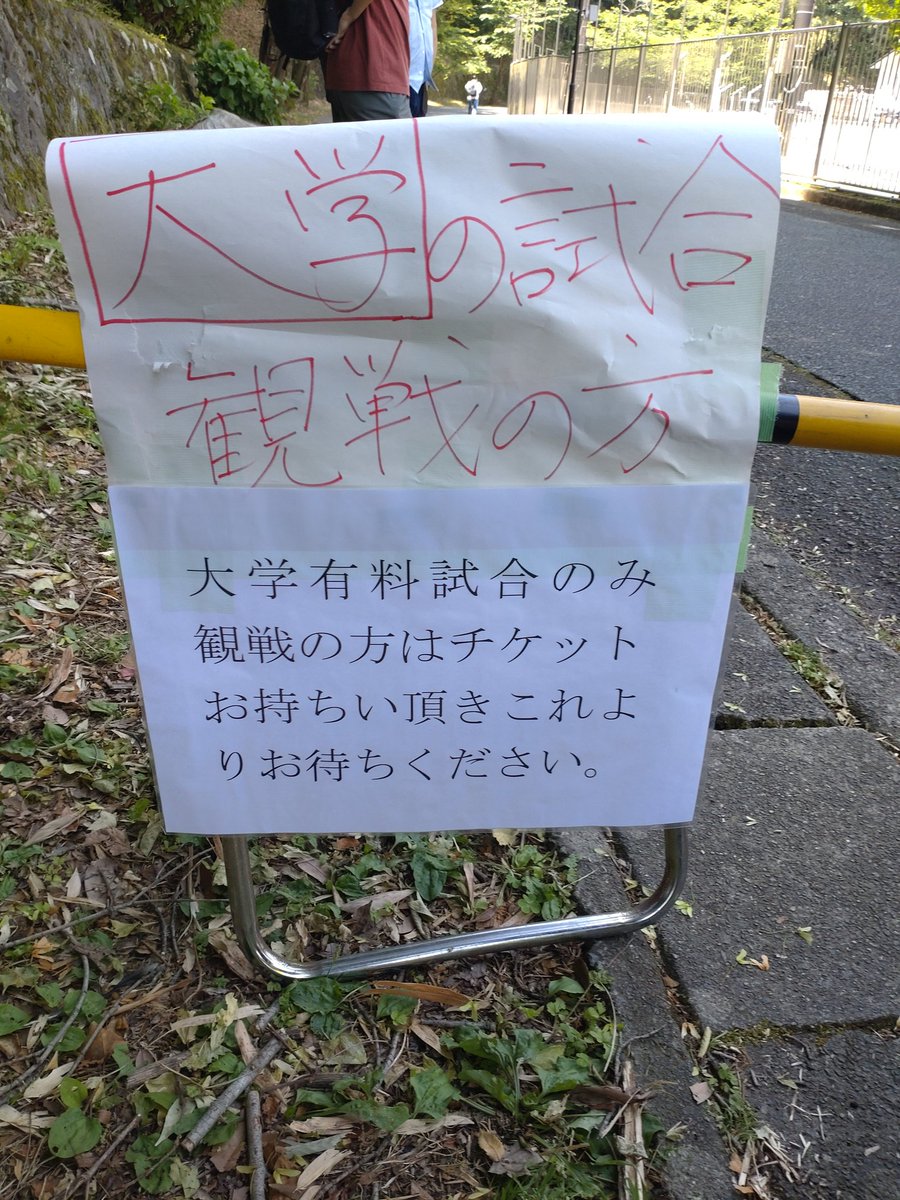 大学の試合
観戦の方
大学有料試合のみ
観戦の方はチケット
お持ちい頂きこれよ
りお待ちください。